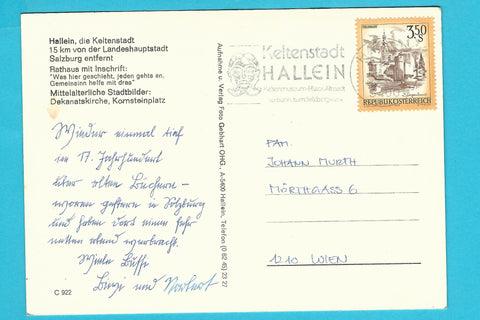 Hallein, die Keltenstadt
15 km von der Landeshauptstadt
Salzburg entfernt
Rathaus mit Inschrift:
"Was hier geschieht, jeden gehts an,
Gemeinsinn helfe mit dras"
Mittelalterliche Stadtbilder:
Dekanatskirche, Kornsteinplatz
Wieder einmal tief
im 17. Jahrhundert
über alten Büchern –
waren gestern in Salzburg
und haben dort einen sehr
netten Abend verbracht.
Viele Bussi
und Norbert
C 922
Aufnahme u. Verlag Foto Gebhart OHG · A-5400 Hallein, Telefon (0 62 45) 22 27
Keltenstadt
HALLEIN
3.50
S
REPUBLIK ÖSTERREICH
FAM.
JOHANN MURTH
MÖRTHGASS 6
1210 WIEN